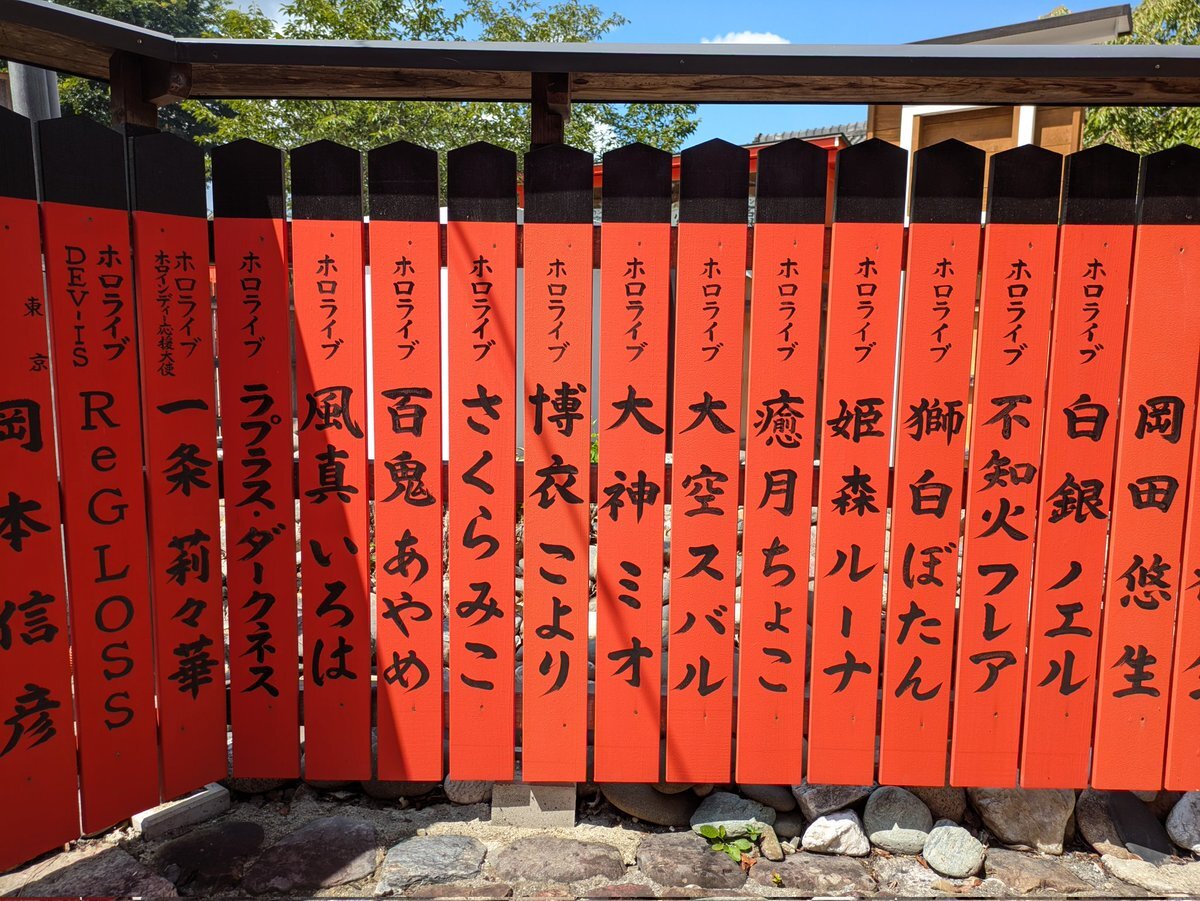 岡田悠生
ホロライブ 白銀ノエル
ホロライブ 不知火フレア
ホロライブ 獅白ぼたん
ホロライブ 姫森ルーナ
ホロライブ 癒月ちょこ
ホロライブ 大空スバル
ホロライブ 大神ミオ
ホロライブ 博衣こより
ホロライブ さくらみこ
ホロライブ 百鬼あやめ
ホロライブ 風真いろは
ホロライブ ラプラス・ダークネス
ホロライブ
ホロインディー応援大使
一条莉々華
ホロライブ
DEV-IS
ReGLOSS
東京 岡本信彦